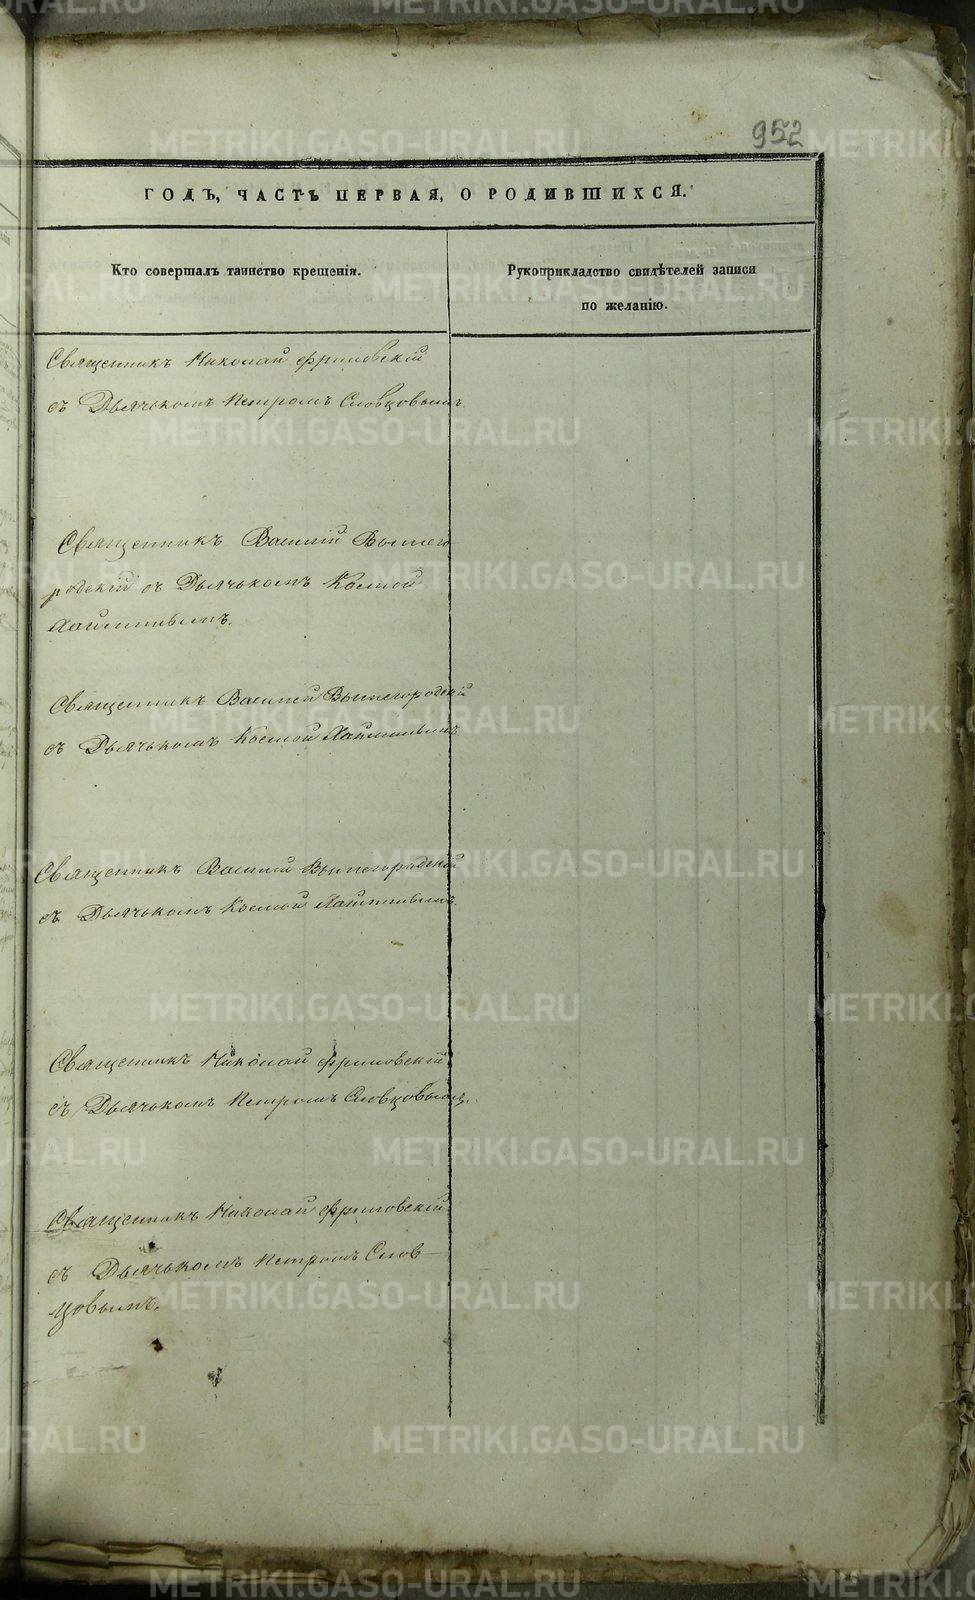 952
ГОДЪ, ЧАСТЬ ПЕРВАЯ, О РОДИВШИХСЯ.
Кто совершалъ таинство крещенія.
Рукоприкладство свидѣтелей записи
по желанію.
Священникъ Николай Фриловскій
съ Дьячькомъ Петромъ Словцовымъ.
Священникъ Василій Вышего
родскій съ Дьячькомъ Космой
Священникъ Василій Вышегородскій
съ Дьячькомъ Космой
Священникъ Василій Вышегородскій
съ Дьячькомъ Космой
Священникъ Николай Фриловскій
съ Дьячькомъ Петромъ Словцовымъ.
Священникъ Николай Фриловскій
съ Дьячькомъ Петромъ Слов-
цовымъ.
METRIKI.GASO-URAL.RU